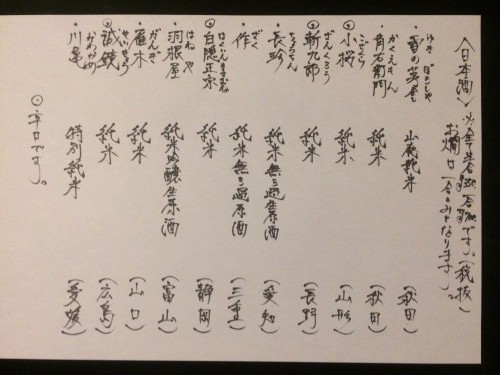 〈日本酒〉
です。(税抜)
お燗は一合のみとなります。
・雪の茅舎 山廃純米 (秋田)
かくえもん
・角右衛門 純米 (秋田)
こざくら
⊙小桜 純米 (山形)
ざんくろう
⊙斬九郎 純米 (長野)
ちょうちん
・長珍 純米無ろ過生原酒 (愛知)
ざく
・作 純米無ろ過原酒 (三重)
はくいんまさむね
⊙白隠正宗 純米 (静岡)
はねや
・羽根屋 純米吟醸生原酒 (富山)
がんぎ
・雁木 純米 (山口)
せいきょう
⊙誠鏡 純米 (広島)
・川亀 特別純米 (愛媛)
⊙辛口です。